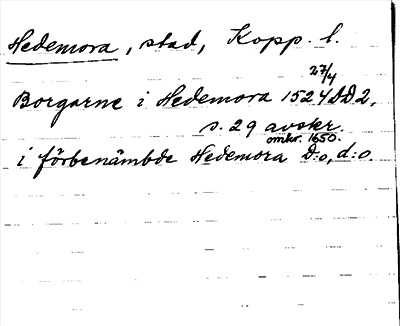 Hedemora, stad, Kopp. l.
27/4
Borgarne i Hedemora 1524 DD 2,
s. 29 avskr.
omkr. 1650.
i förbenämbde Hedemora D:o, d:o.